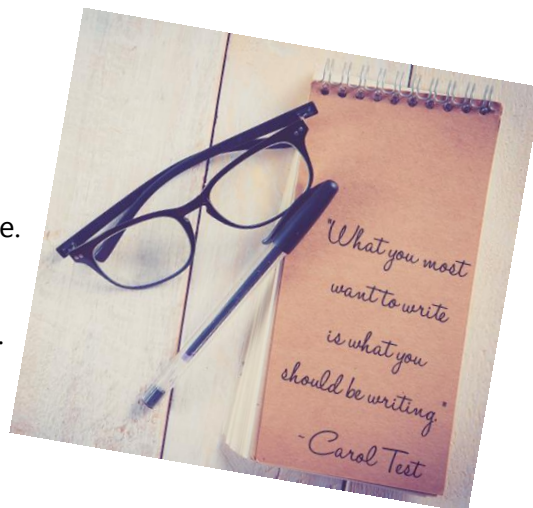 e.
.
"What you most
want to write
is what you
should be writing."
-Carol Test